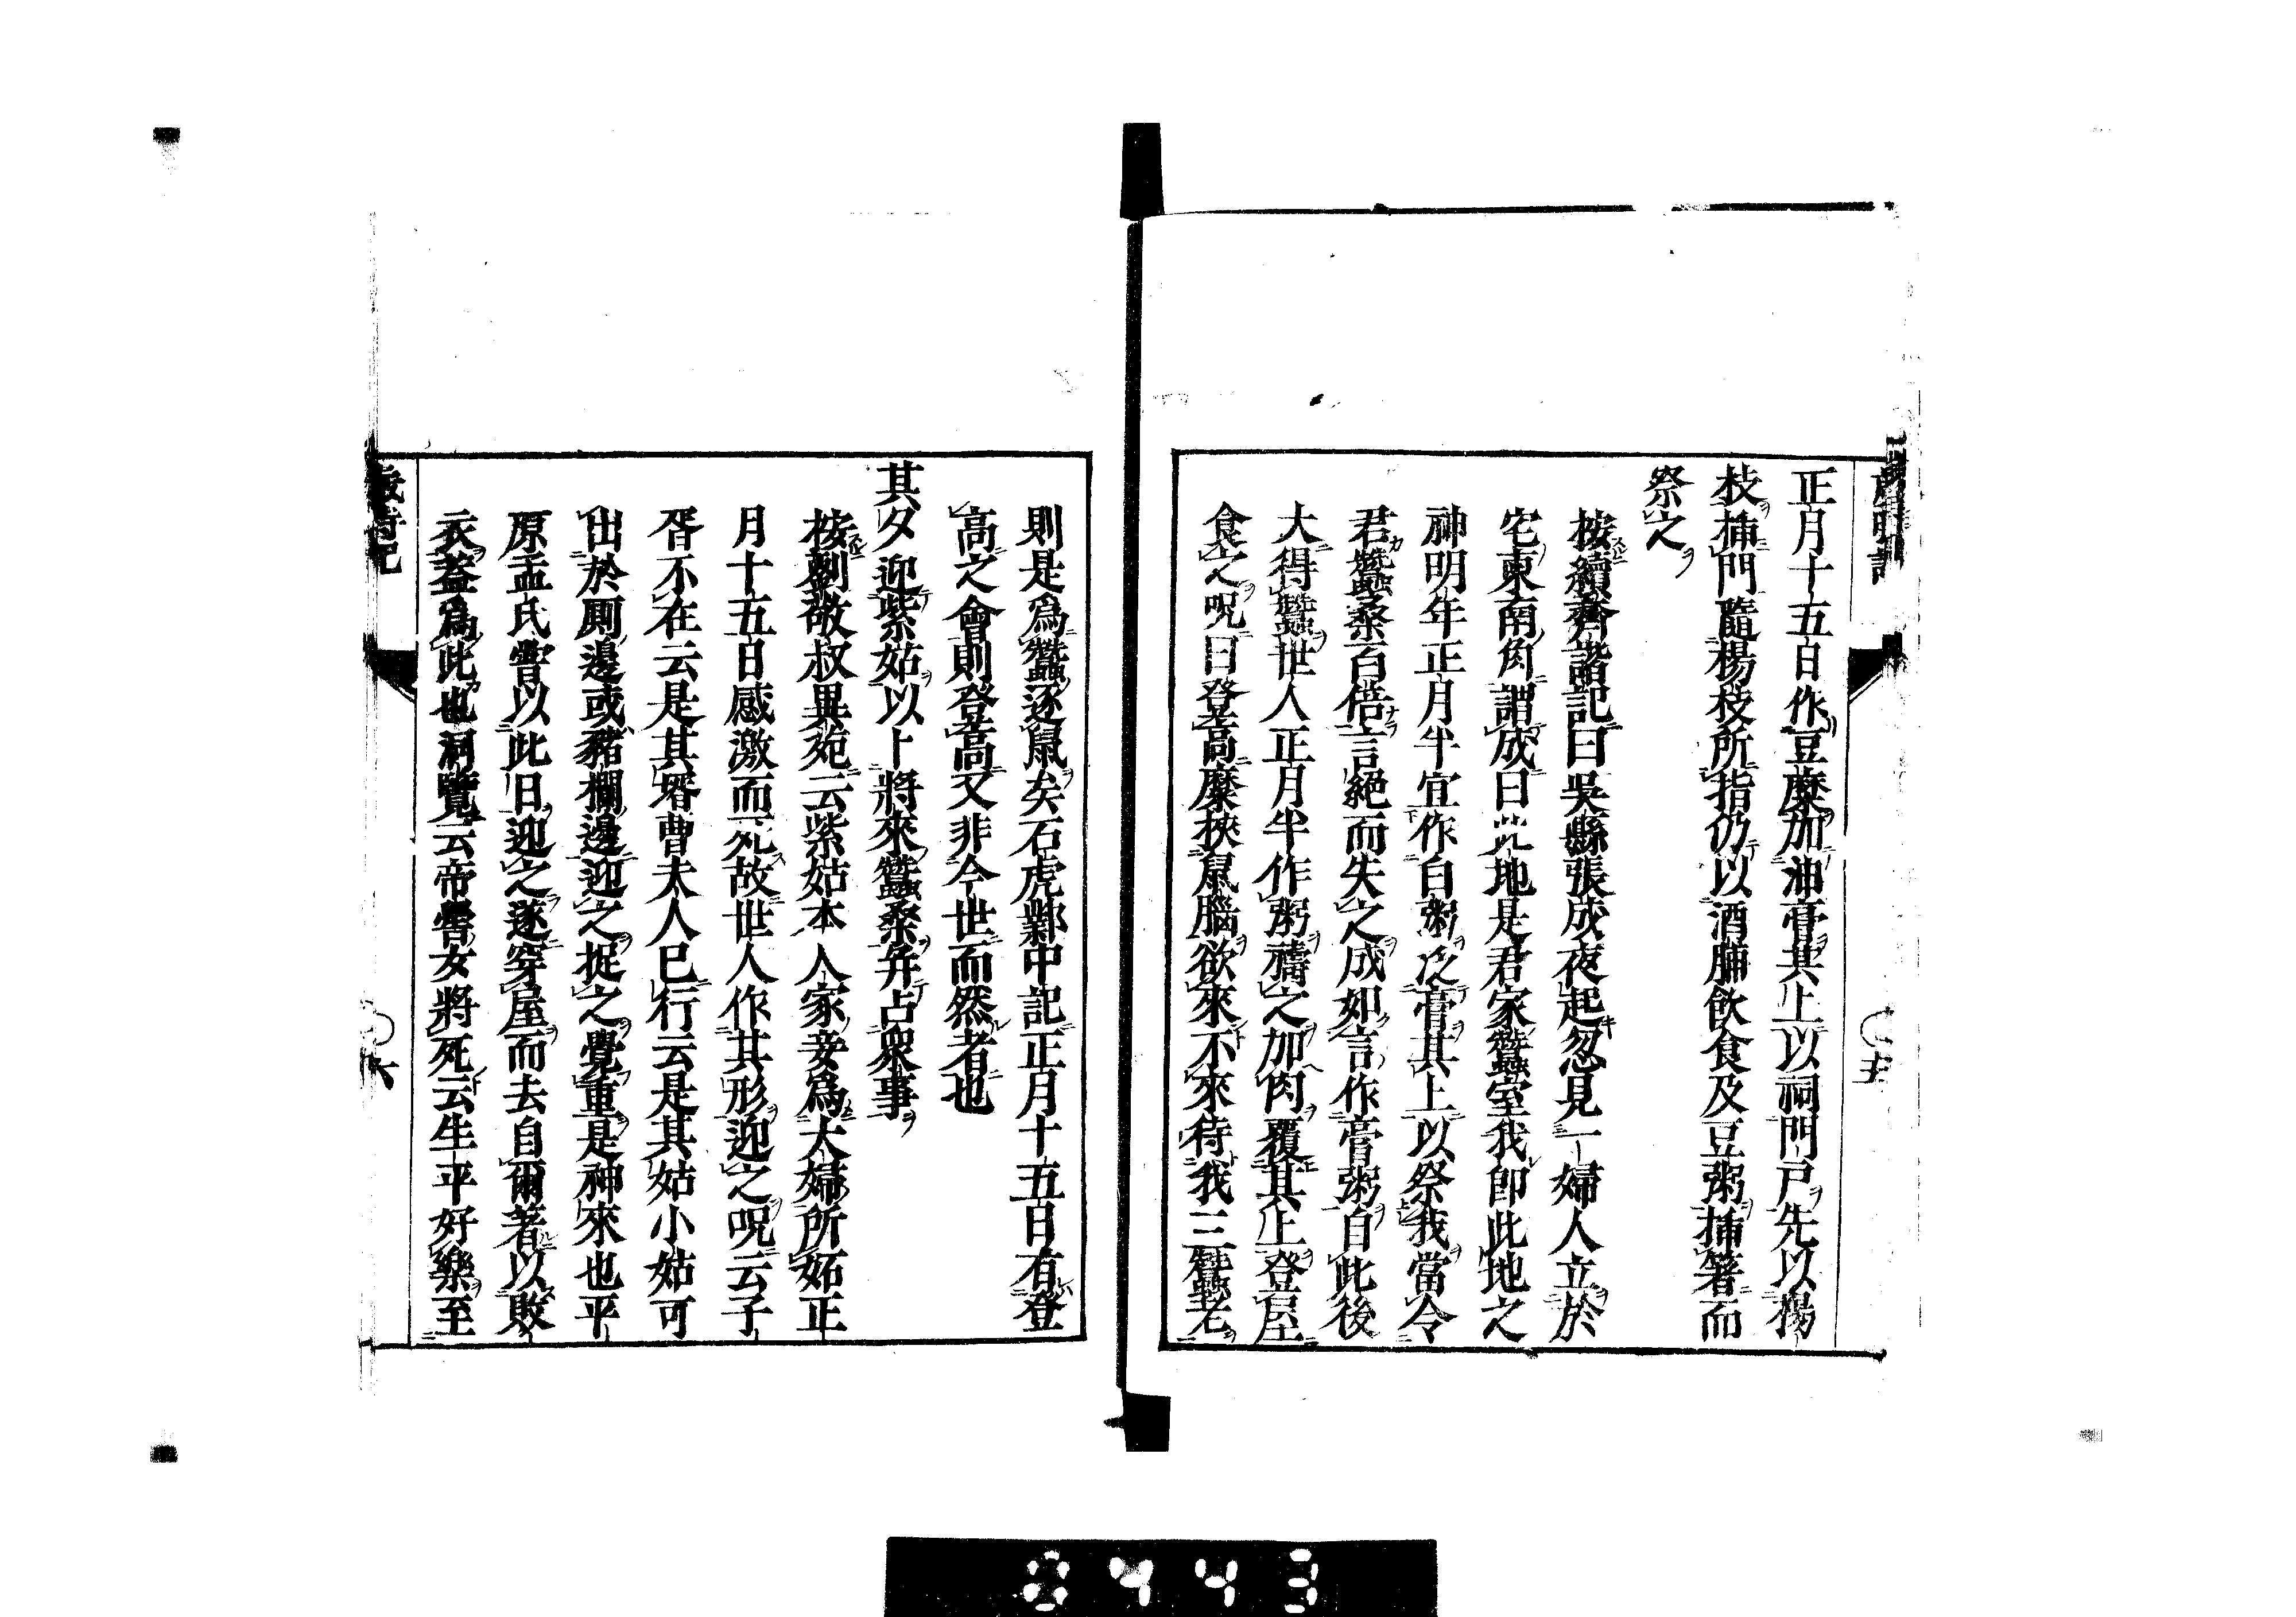 正月十五日作豆糜加油膏其上以祠門戸先以楊
枝揷門隨楊枝所指仍以酒脯飲食及豆粥揷箸而
祭之
按續齊諧記曰吳縣張成夜起忽見一婦人立於
宅東南角謂成曰此地是君家蠶室我卽此地之
神明年正月半宜作白粥泛膏其上以祭我當令
君蠶桑百倍言絕而失之成如言作膏粥自此後
大得蠶世人正月半作粥禱之加肉覆其上登屋
食之呪曰登高糜挾鼠腦欲來不來待我三蠶老
則是爲蠶逐鼠矣石虎鄴中記正月十五日有登
高之會則登高又非今世而然者也
其夕迎紫姑以卜將來蠶桑幷占衆事
按劉敬叔異苑云紫姑本人家妾爲大婦所妬正
月十五日感激而死故世人作其形迎之呪云子
胥不在云是其壻曹夫人已行云是其姑小姑可
出於厠邊或豬欄邊迎之捉之覺重是神來也平
原孟氏嘗以此日迎之遂穿屋而去自爾著以敗
衣蓋爲此也洞覽云帝嚳女將死云生平好樂至
歲時記
六
0443